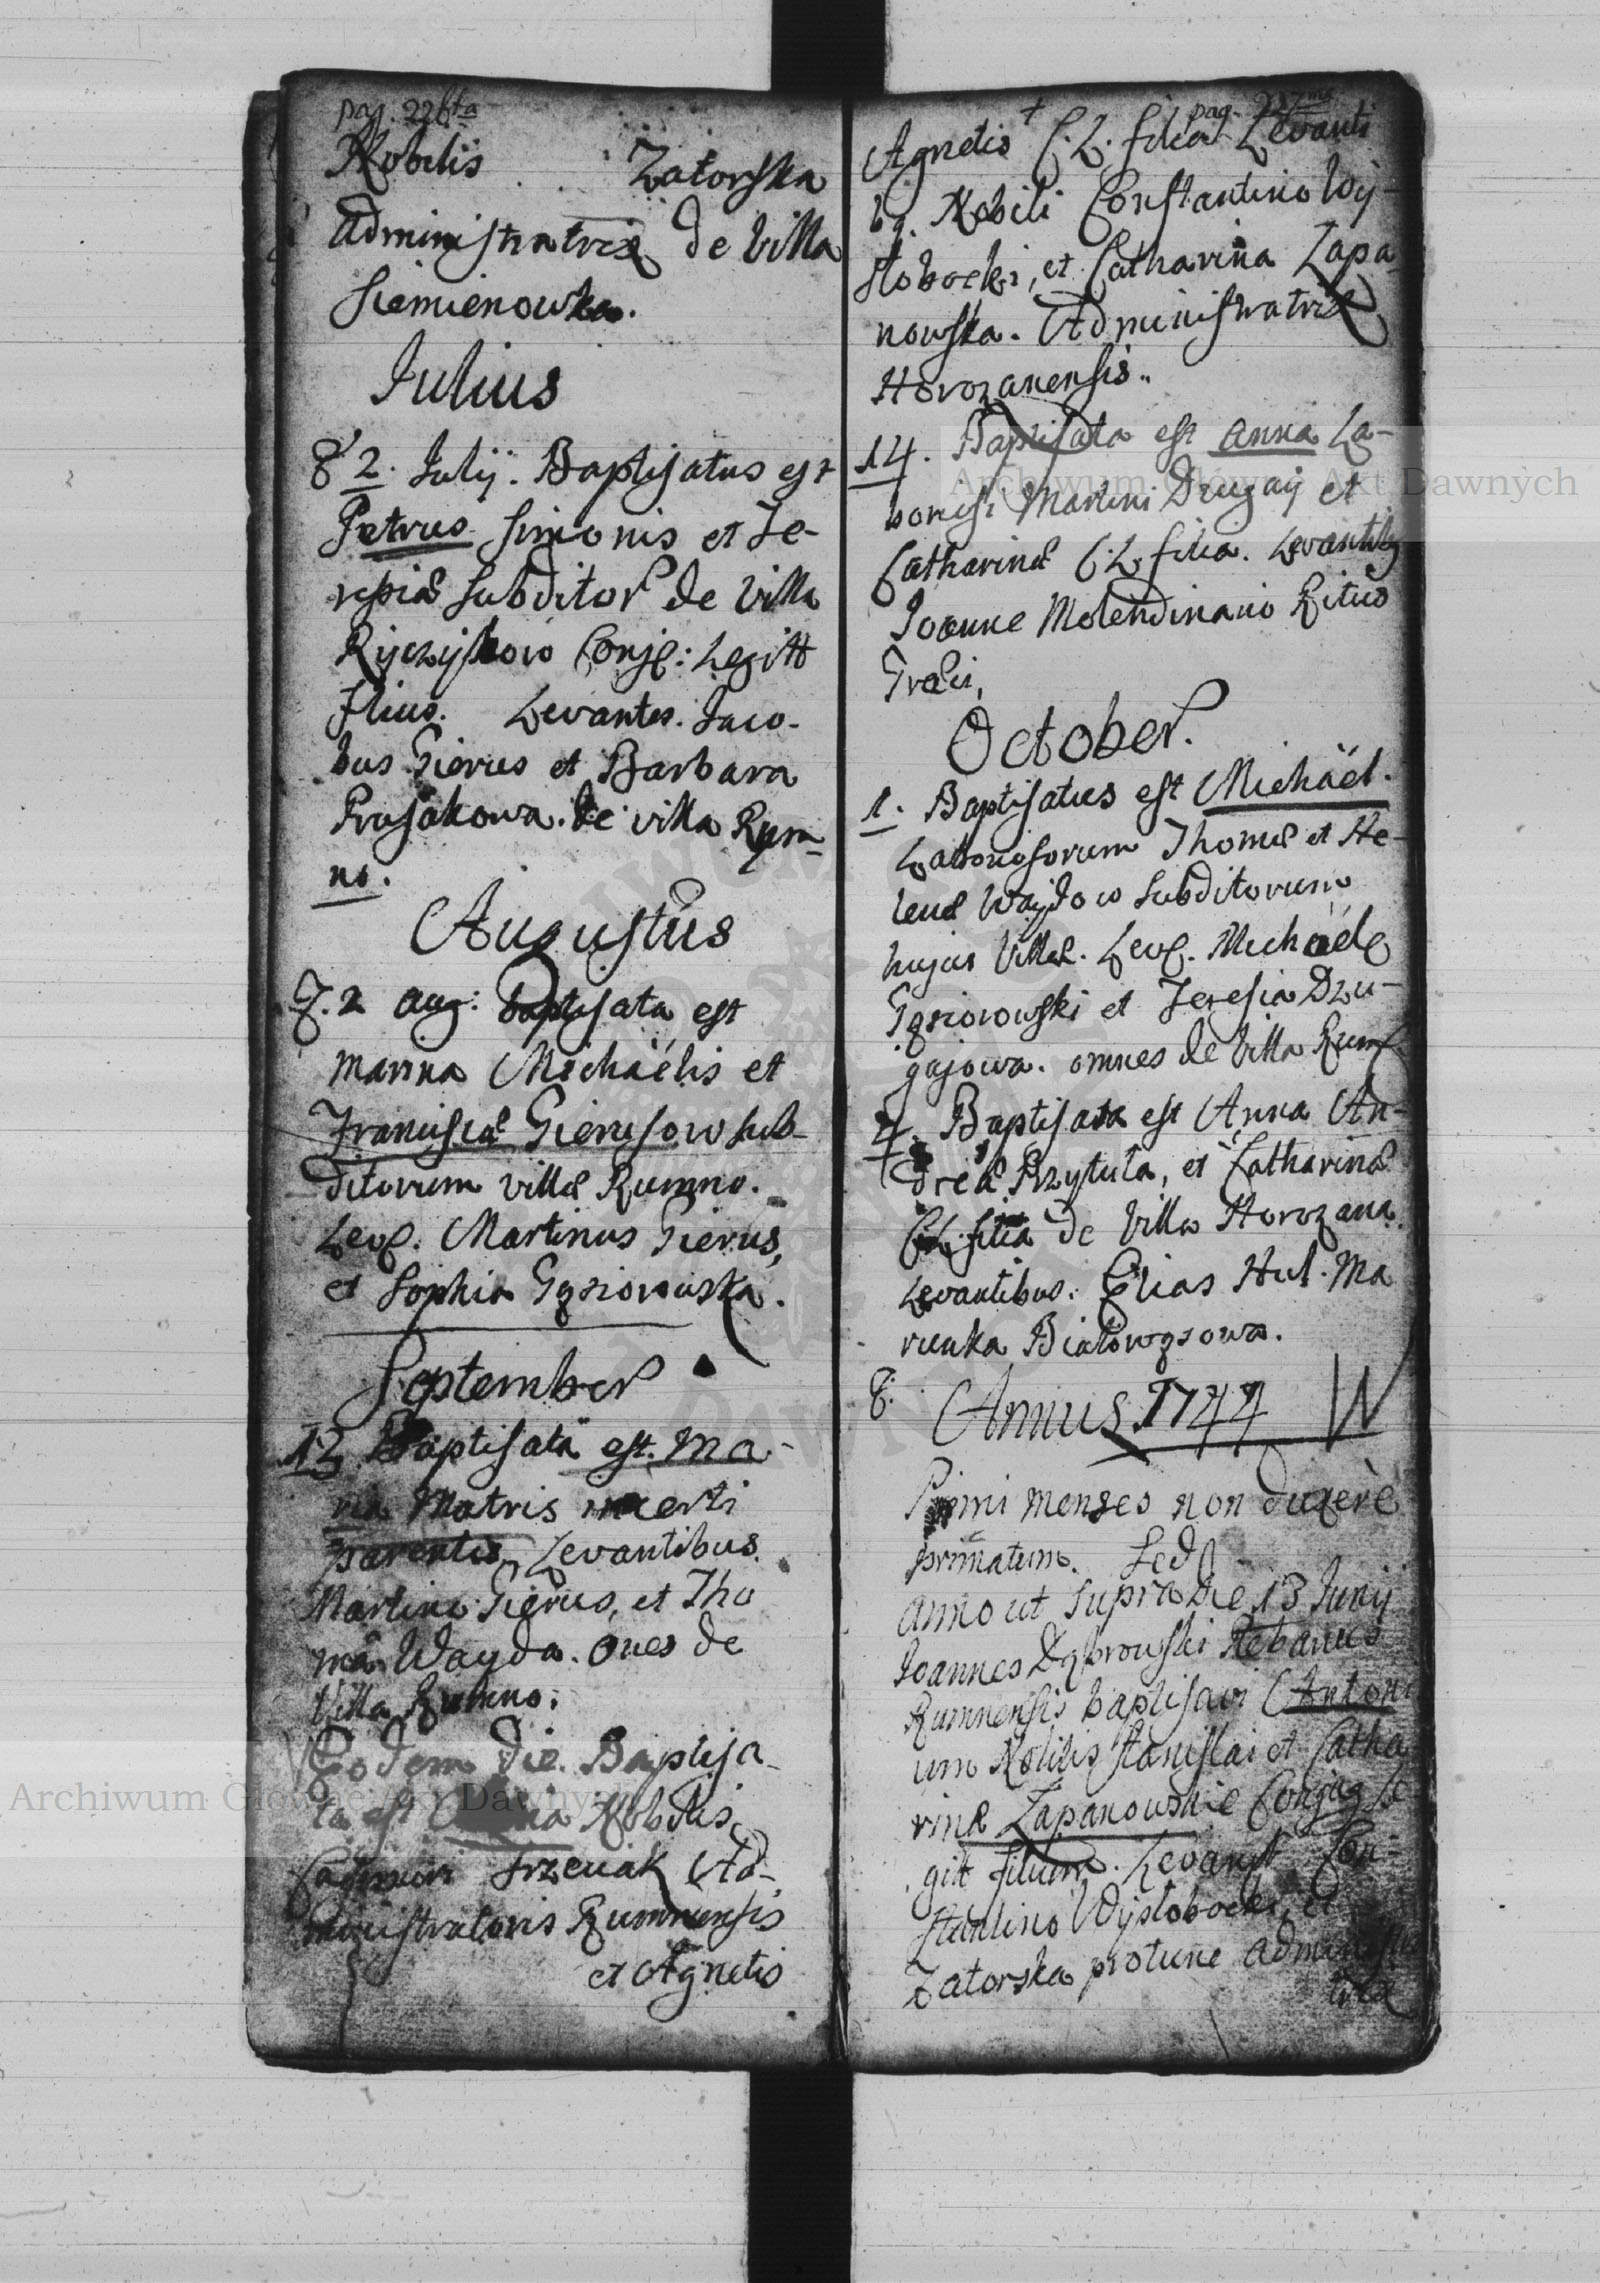 pag. 226ta
Nobilis Zatorska
Administratrix de Villa
Siemienowka.
Julius
8 2. Julij. Baptisatus est
Petrus Simonis et Te-
resiæ subditor de Villa
Ryczyhow Conj: Legitt
filius. Levantes. Jaco-
bus Gierus et Barbara
Prusakowa. de villa Rum-
no.
Augustus
7. 2 Aug: Baptisata est
Marina Michaëlis et
Franciscæ Gierusow sub-
ditorum villæ Rumno.
Lev. Martinus Gierus,
et Sophia Gąsiorowska.
September
12 Baptisata est Ma-
ria Matris incerti
parentis, Levantibus
Martino Gierus, et Tho
mâ Wayda. Oues de
Villa Rumno.
Eodem die. Baptisa-
ta est Nobilis
Casimiri Trzeciak Ad-
ministratoris Rumnensis
et Agnetis
pag. 227ma
Agnetis C. L. filia Levanti
bq. Nobili Constantino Wy-
słobocki, et Catharina Łapa-
nowska. Administratrix
Horozanensis.
14. Baptisata est Anna La-
boriosi Martini Dzugaij et
Catharinæ C. L. filia. Levantibq
Joanne Molendinario Ritus
Græci,
October.
1. Baptisatus est Michaël.
Laboriosorum Thomæ et He-
lenæ Waydow subditorum
hujus Villæ. Lev. Michaële
Gąsiorowski et Teresia Dzu-
gajowa. omnes de Villa Rum.
4. Baptisata est Anna An-
dreæ Przytuła, et Catharinæ
C. L. filia de Villa Horozana.
Levantibus. Elias Hul. Ma
runka Białowąsowa.
8. Annus 1744
Primi menses non duxere
primatum. Sed
Anno ut supra Die 13 Junij
Joannes Dąbrowski Plebanus
Rumnensis baptisavi Antoni
um Nobilis Stanislai et Catha
rinæ Łapanowskie Conjug Le
gitt filium. Levant Con-
stantino Wysłobocki, et
Zatorska protunc Administra
trix
Archiwum Główne Akt Dawnych
Archiwum Główne Akt Dawnych